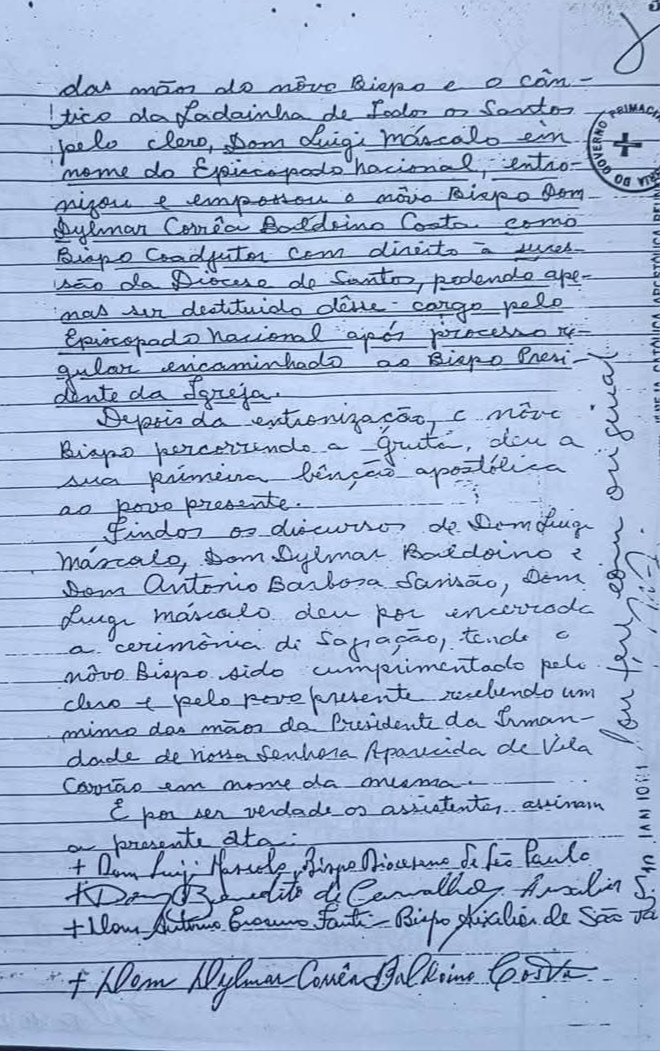 das mãos do nôvo Bispo e o cân-
tico da Ladainha de Todos os Santos
pelo clero, Dom Luigi Máscalo em
nome do Episcopado nacional, entro-
nizou e empossou o nôvo Bispo Dom
Dylmar Corrêa Baldoino Costa como
Bispo Coadjutor com direito à suces-
são da Diocese de Santos, podendo ape-
nas ser destituido dêsse cargo pelo
Episcopado nacional após processo re-
gular encaminhado ao Bispo Presi-
dente da Igreja.
Depois da entronização, o nôvo
Bispo percorrendo a Gruta, deu a
sua primeira bênção apostólica
ao povo presente.
Findos os discursos de Dom Luigi
Máscalo, Dom Dylmar Baldoino e
Dom Antonio Barbosa Sansão, Dom
Luigi Máscalo deu por encerrada
a cerimônia de Sagração, tendo o
nôvo Bispo sido cumprimentado pelo
clero e pelo povo presente recebendo um
mimo das mãos da Presidente da Irman-
dade de Nossa Senhora Aparecida de Vila
Carrão em nome da mesma.
E por ser verdade os assistentes assinam
a presente ata:
+ Dom Luigi Mascolo, Bispo Diocesano de São Paulo
+ Dom Benedito de Carvalho, Auxiliar
+ Dom Antonio Fanti - Bispo Auxiliar de São
+ Dom Dylmar Corrêa Baldoino Costa
DO GOVERNO PRIMACIAL
IGREJA CATÓLICA APOSTÓLICA
com original